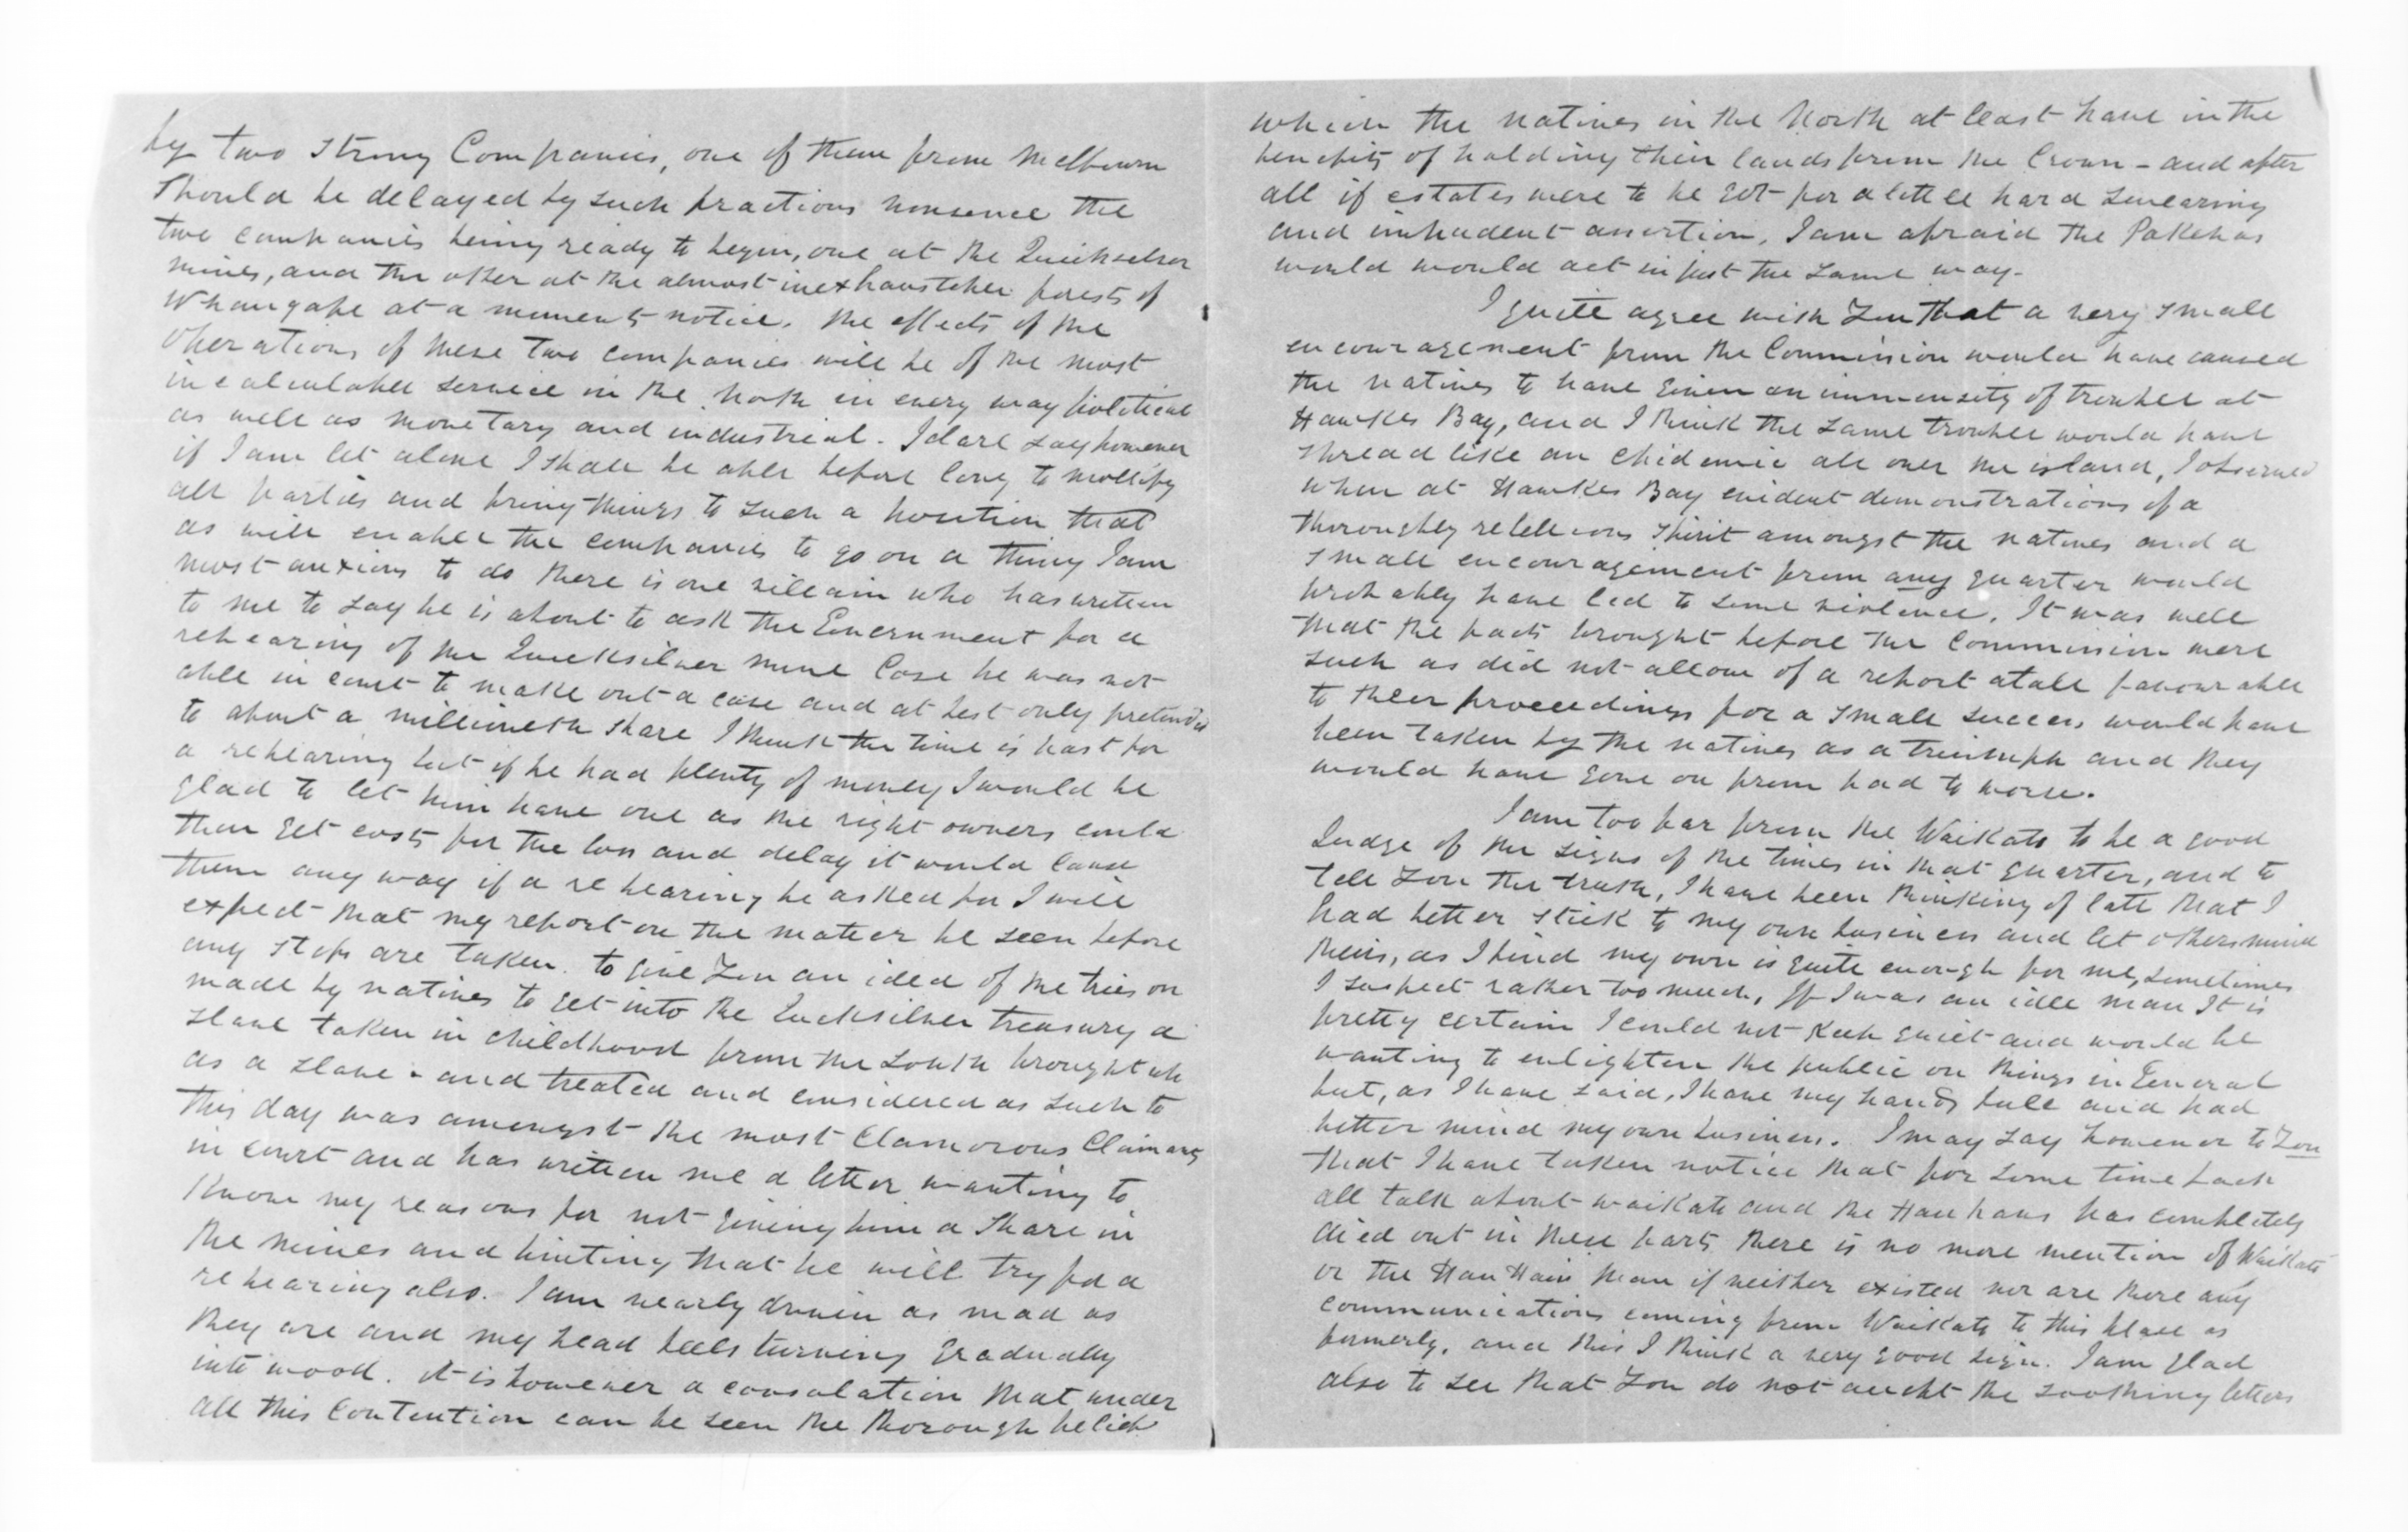 by two strong Companies, one of them from Melbourn
should be delayed by such fractious nonsence the
two companies being ready to begin, one at the Quicksilver
mines, and the other at the almost inexhaustable forests of
Whangape at a moments notice. The effects of the
operations of these two companies will be of the most
incalculable service in the North in every way political
as well as monetary and industrial. I dare say however
if I am let alone I shall be able before long to mollify
all parties and bring things to such a position that
as will enable the companies to go on a thing I am
most anxious to do there is one villain who has written
to me to say he is about to ask the Government for a
rehearing of the Quicksilver mine Case he was not
able in court to make out a case and at best only pretended
to about a millioneth share I think the time is past for
a rehearing but if he had plenty of money I would be
glad to let him have one as the right owners could
then get costs for the loss and delay it would cause
them any way if a rehearing be asked for I will
expect that my report on the matter be seen before
any steps are taken. to give you an idea of the tries on
made by natives to get into the Quicksilver treasury a
slave taken in childhood from the South brought up
as a slave and treated and considered as such to
this day was amongst the most Clamorous Claimants
in court and has written me a letter wanting to
know my reasons for not giving him a share in
the mines and hinting that he will try for a
rehearing also. I am nearly driven as mad as
they are and my head feels turning gradually
into wood. it is however a consolation that under
all this Contention can be seen the thorough belief
which the natives in the North at least have in the
benefits of holding their lands from the Crown - and after
all if estates were to be got for a little hard swearing
and impudent assertion, I am afraid the Pakehas
would would act in just the same way-
I quite agree with you that a very small
encouragement from the Commission would have caused
the natives to have given an immensity of trouble at
Hawkes Bay, and I think the same trouble would have
spread like an epidemic all over the island, I observed
when at Hawkes Bay evident demonstrations of a
thoroughly rebellious spirit amongst the natives and a
small encouragement from any quarter would
probably have led to some violence. It was well
that the facts brought before the Commission were
such as did not allow of a report atall favourable
to their proceedings for a small success would have
been taken by the natives as a triumph and they
would have gone on from bad to worse.
I am too far from the Waikato to be a good
Judge of the signs of the times in that quarter, and to
tell you the truth, I have been thinking of late that I
had better stick to my own business and let others mind
theirs, as I find my own is quite enough for me, sometimes
I suspect rather too much, If I was an idle man It is
pretty certain I could not keep quiet and would be
wanting to enlighten the public on things in General
but, as I have said, I have my hands full and had
better mind my own business. I may say however to you
that I have taken notice that for some time back
all talk about waikato and the Hau haus has completely
died out in these parts there is no more mention of Waikato
or the Hau Haus than if neither existed nor are there any
communications coming from Waikato to this place as
formerly, and this I think a very good sign. I am glad
also to see that you do not accept the soothing letters